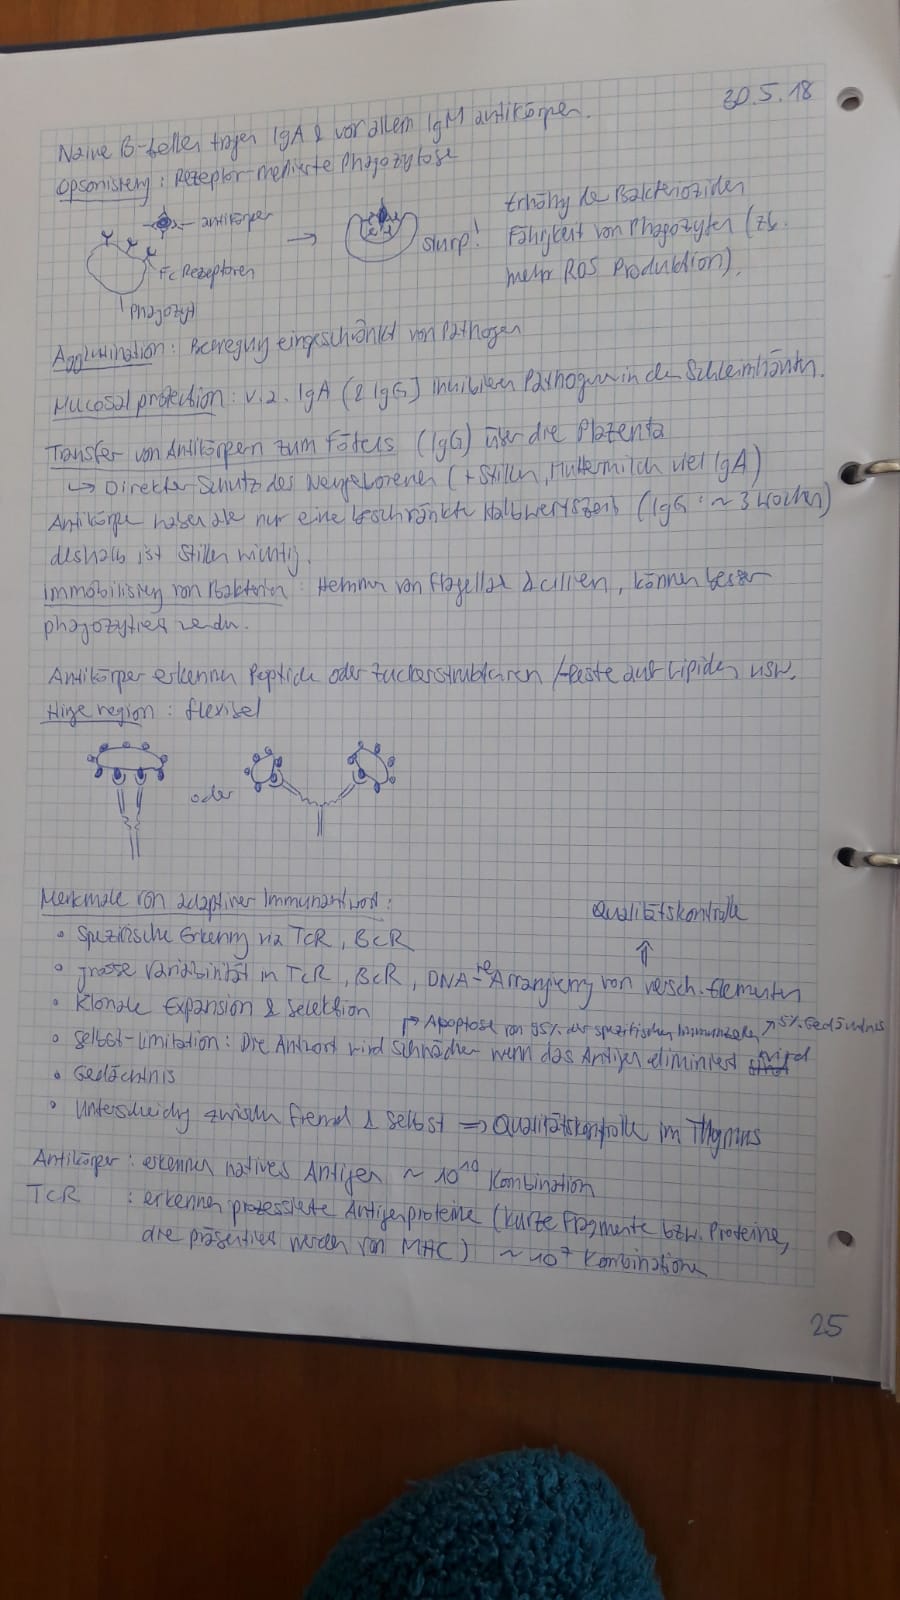 30.5.18
Naive B-Zellen tragen IgA & vor allem IgM antikörper.
Opsonisierung: Rezeptor-mediierte Phagozytose
antikörper
Fc Rezeptoren
Phagozyt
slurp!
Erhöhg der Bakterioziden
Fähigkeit von Phagozyten (zb.
mehr ROS Produktion).
Agglutination: Bewegung eingeschränkt von Pathogen
Mucosal protection: v.a. IgA (& IgG) inhibieren Pathogene in den Schleimhäuten.
Transfer von Antikörpern zum Fötus (IgG) über die Plazenta
↳ Direkter Schutz des Neugeborenen (+ Stillen, Muttermilch viel IgA)
Antikörper haben aber nur eine beschränkte Halbwertszeit (IgG: ~3 Wochen)
deshalb ist Stillen wichtig.
Immobilisierg von Bakterien: Hemmen von Flagellae & cilien, können besser
phagozytiert werden.
Antikörper erkennen Peptide oder Zuckerstrukturen /-reste auf Lipiden usw.
Hinge region: flexibel
oder
Merkmale von adaptiver Immunantwort:
Qualitätskontrolle
• Spezifische Erkenng via TCR, BCR
⇑
• grosse Variabilität in TCR, BCR, DNA-re Arrangierung von versch. Elementen
• Klonale Expansion & Selektion
↱ Apoptose von 95% der spezifischen Immunzellen ↗ 5% Gedächtnis
• Selbst-Limitation: Die Antwort wird schwächer wenn das Antigen eliminiert wird
• Gedächtnis
• Unterscheidg zwischen fremd & selbst ⇒ Qualitätskontrolle im Thymus
Antikörper: erkennen natives Antigen ~ 10¹⁰ Kombination
TCR : erkennen prozessierte Antigenproteine (kurze Fragmente bzw. Proteine,
die präsentiert werden von MHC) ~ 10⁷ Kombinationen
25